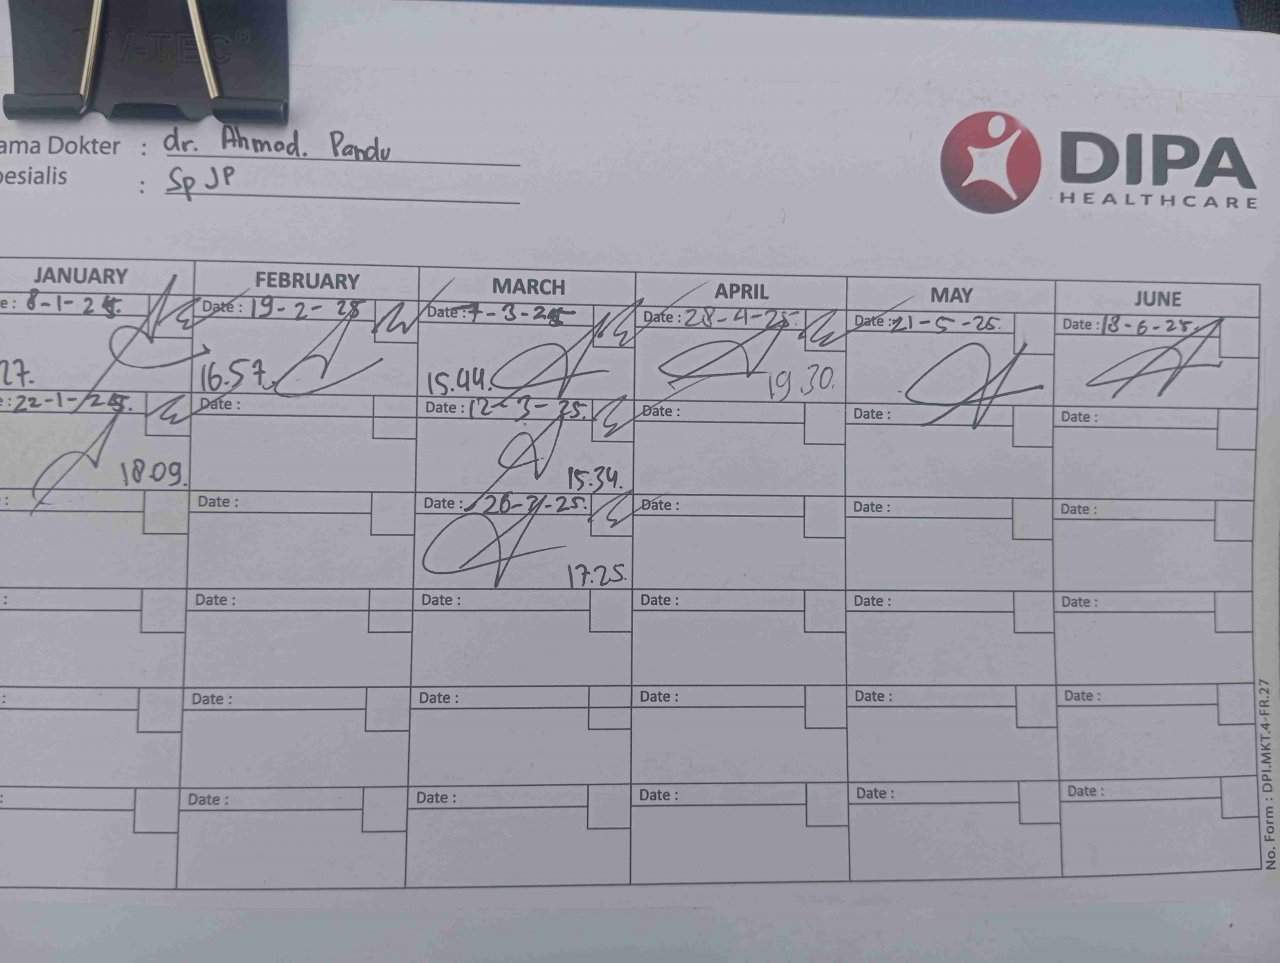 V-TEC
ama Dokter : dr. Ahmad. Pandu
pesialis : Sp JP
DIPA
HEALTHCARE
JANUARY FEBRUARY MARCH APRIL MAY JUNE
e : 8-1-25. Date : 19-2-25 Date : 7-3-25 Date : 28-4-25. Date : 21-5-25. Date : 18-6-25.
27. 16.57. 15.44. 19.30.
e : 22-1-25. Date : Date : 12-3-25. Date : Date : Date :
18.09. 15.34.
: Date : Date : 26-3-25. Date : Date : Date :
17.25.
: Date : Date : Date : Date : Date :
: Date : Date : Date : Date : Date :
: Date : Date : Date : Date : Date :
No. Form : DPI.MKT.4-FR.27